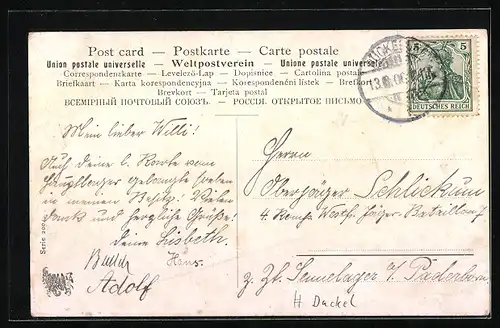 Post card — Postkarte — Carte postale
Union postale universelle — Weltpostverein — Unione postale universale
Correspondenzkarte — Levelező-Lap — Dopisnice — Cartolina postale
Briefkaart — Karta korespondencyjna — Korespondenční lístek — Brefkort
Brevkort — Tarjeta postal
ВСЕМІРНЫЙ ПОЧТОВЫЙ СОЮЗЪ. — РОССІЯ. ОТКРЫТОЕ ПИСЬМО
5 5
DEUTSCHES REICH
Mein lieber Willi!
Auch deine l. Karte vom
gelangte soeben
in meinen Besitz. Vielen
Dank und herzliche Grüße!
Deine Lisbeth.
Hans.
Adolf
Serie
Herrn
Oberjäger Schlickum
4. Komp. Westf. Jäger-Bataillon 7
z. Zt. Sennelager b/ Paderborn
H Dackel